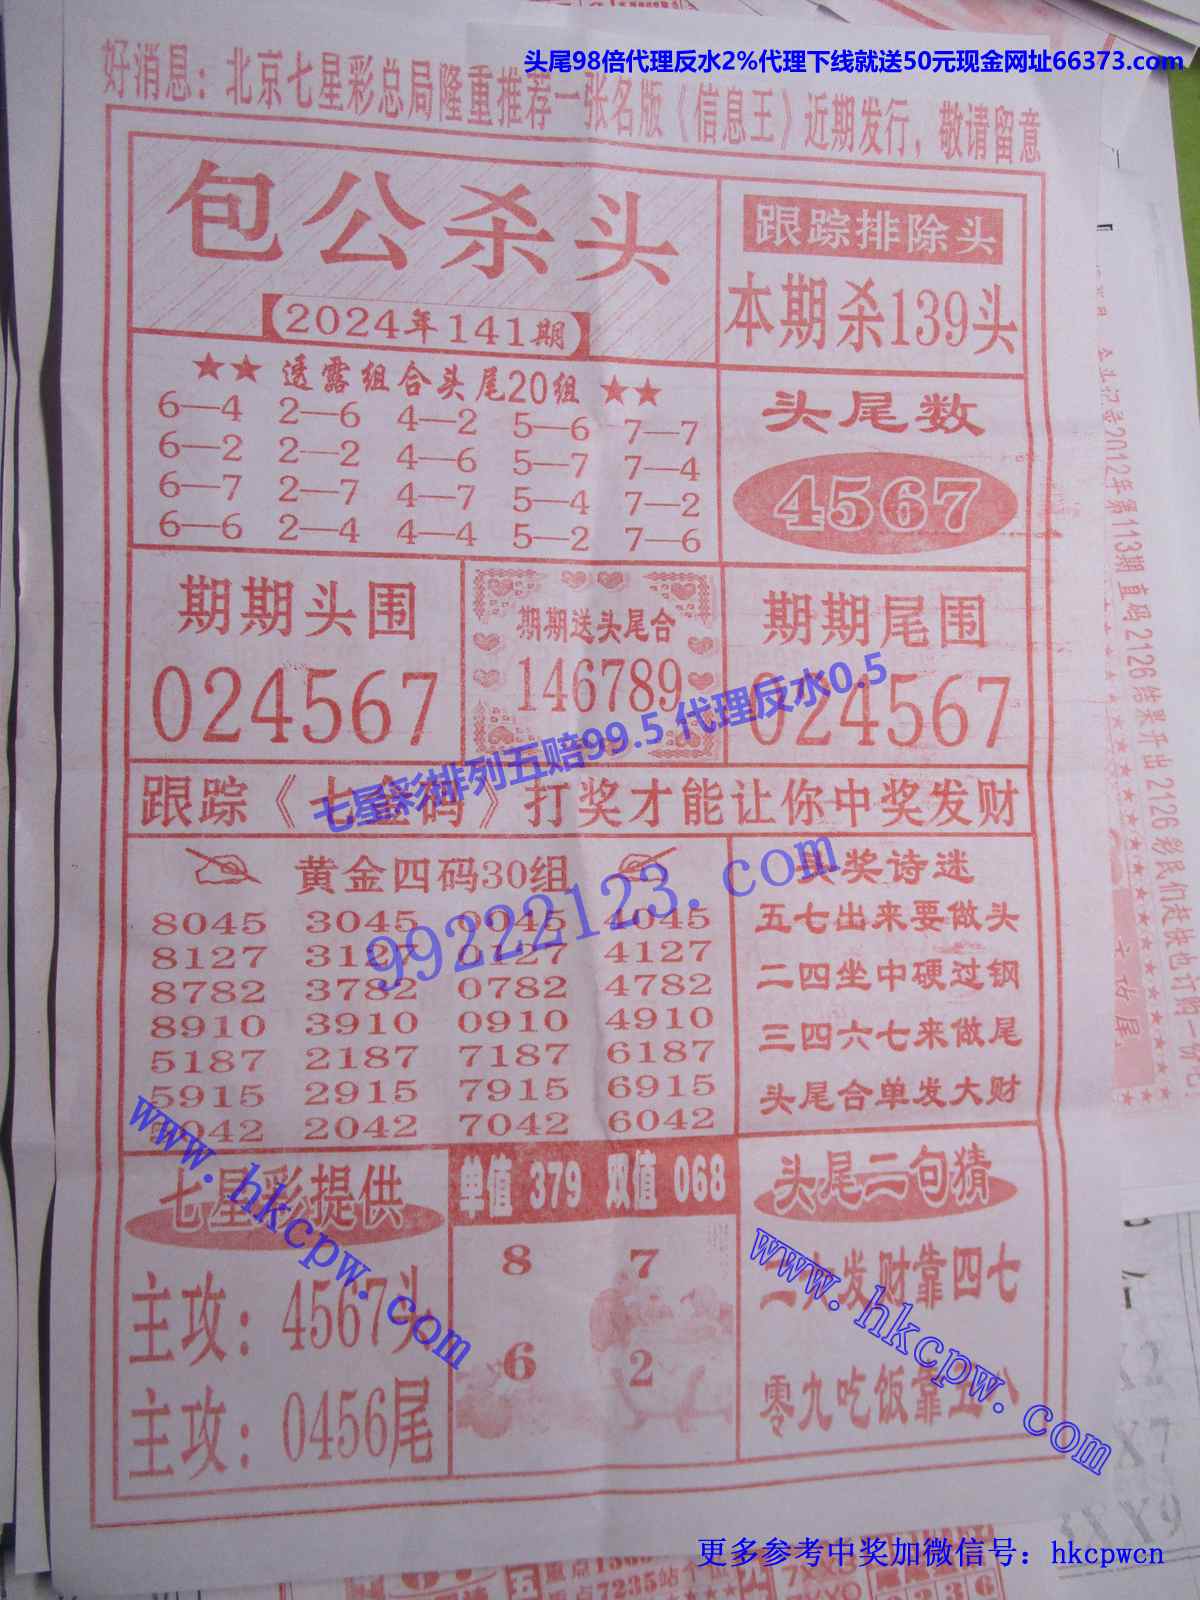 头尾98倍代理反水2%代理下线就送50元现金网址66373.com
好消息：北京七星彩总局隆重推荐一张名版《信息王》近期发行，敬请留意
包公杀头
【2024年141期】
跟踪排除头
本期杀139头
★★ 透露组合头尾20组 ★★
6—4 2—6 4—2 5—6 7—7
6—2 2—2 4—6 5—7 7—4
6—7 2—7 4—7 5—4 7—2
6—6 2—4 4—4 5—2 7—6
头尾数
4567
期期头围
024567
期期送头尾合
146789
期期尾围
024567
七星彩排列五赔99.5 代理反水0.5
跟踪《七金码》打奖才能让你中奖发财
黄金四码30组
8045 3045 0045 4045
8127 3127 0127 4127
8782 3782 0782 4782
8910 3910 0910 4910
5187 2187 7187 6187
5915 2915 7915 6915
5042 2042 7042 6042
99222123.com
头奖诗迷
五七出来要做头
二四坐中硬过钢
三四六七来做尾
头尾合单发大财
七星彩提供
主攻：4567头
主攻：0456尾
www.hkcpw.com
单值 379 双值 068
8 7
6 2
头尾二句猜
发财靠四七
零九吃饭靠五八
www.hkcpw.com
2012年第113期直码2126结果开出2126彩民们赶快也订购一份吧
X2
X7
XX9
更多参考中奖加微信号：hkcpwcn